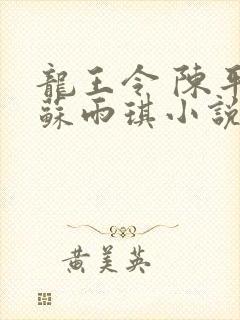 龍王令 陳平
蘇雨琪小說
黃美英